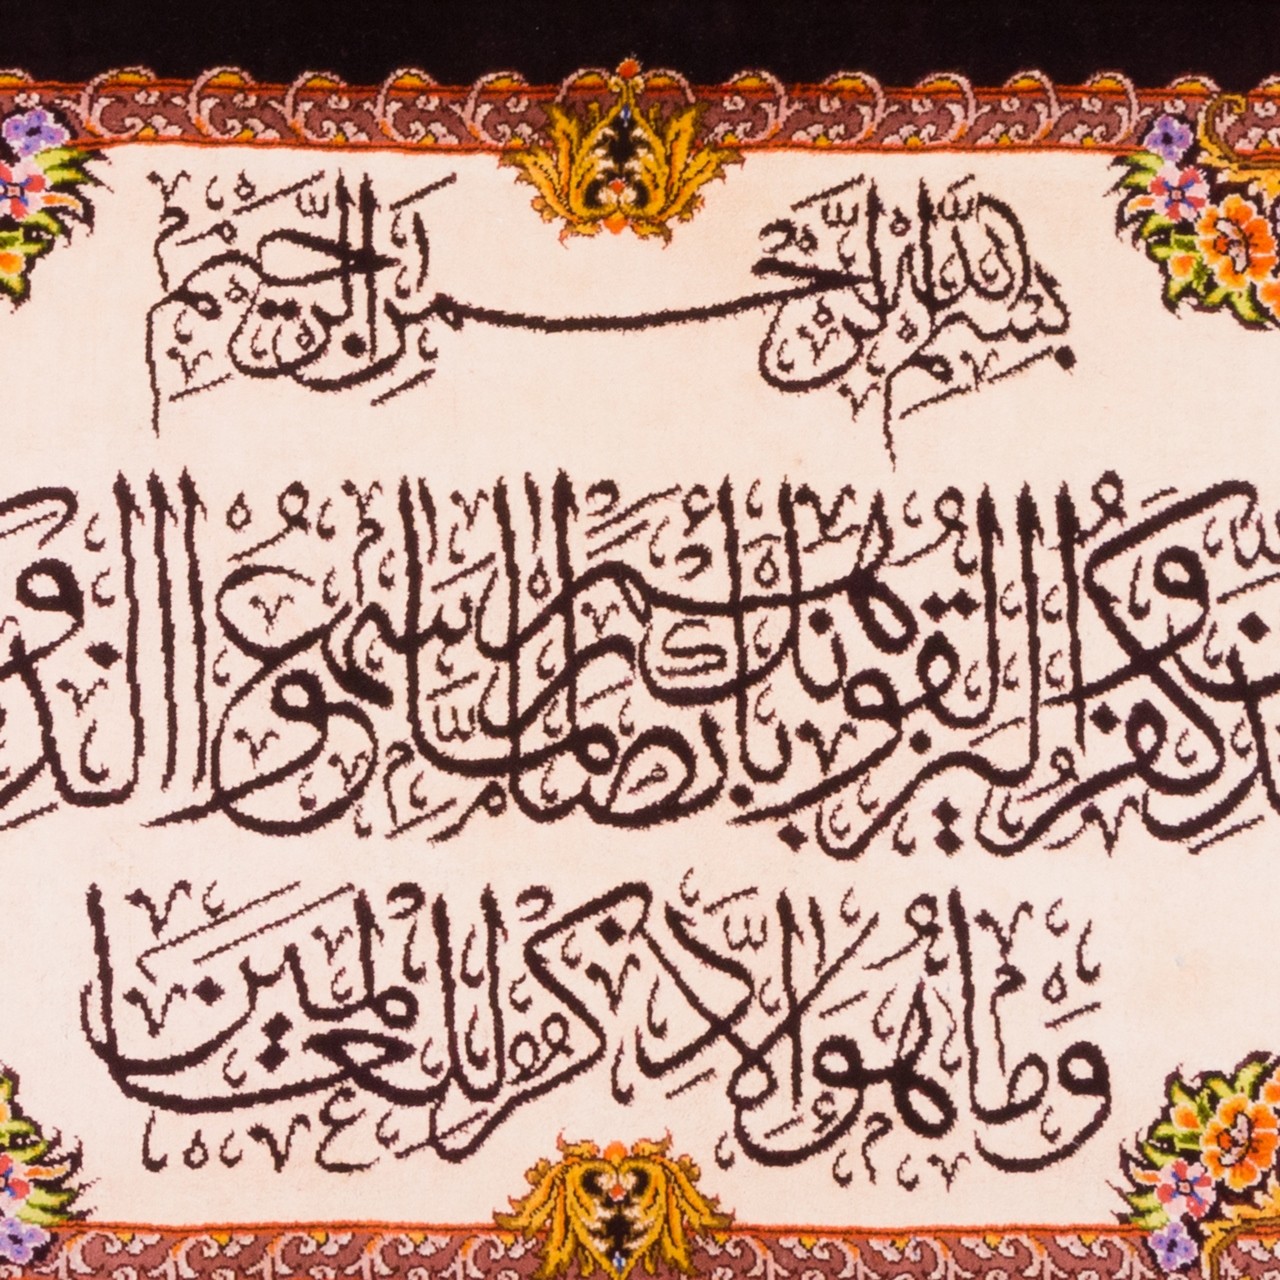 بسم الله الرحمن الرحيم
وإن يكاد الذين كفروا ليزلقونك بأبصارهم لما سمعوا الذكر
وما هو إلا ذكر للعالمين